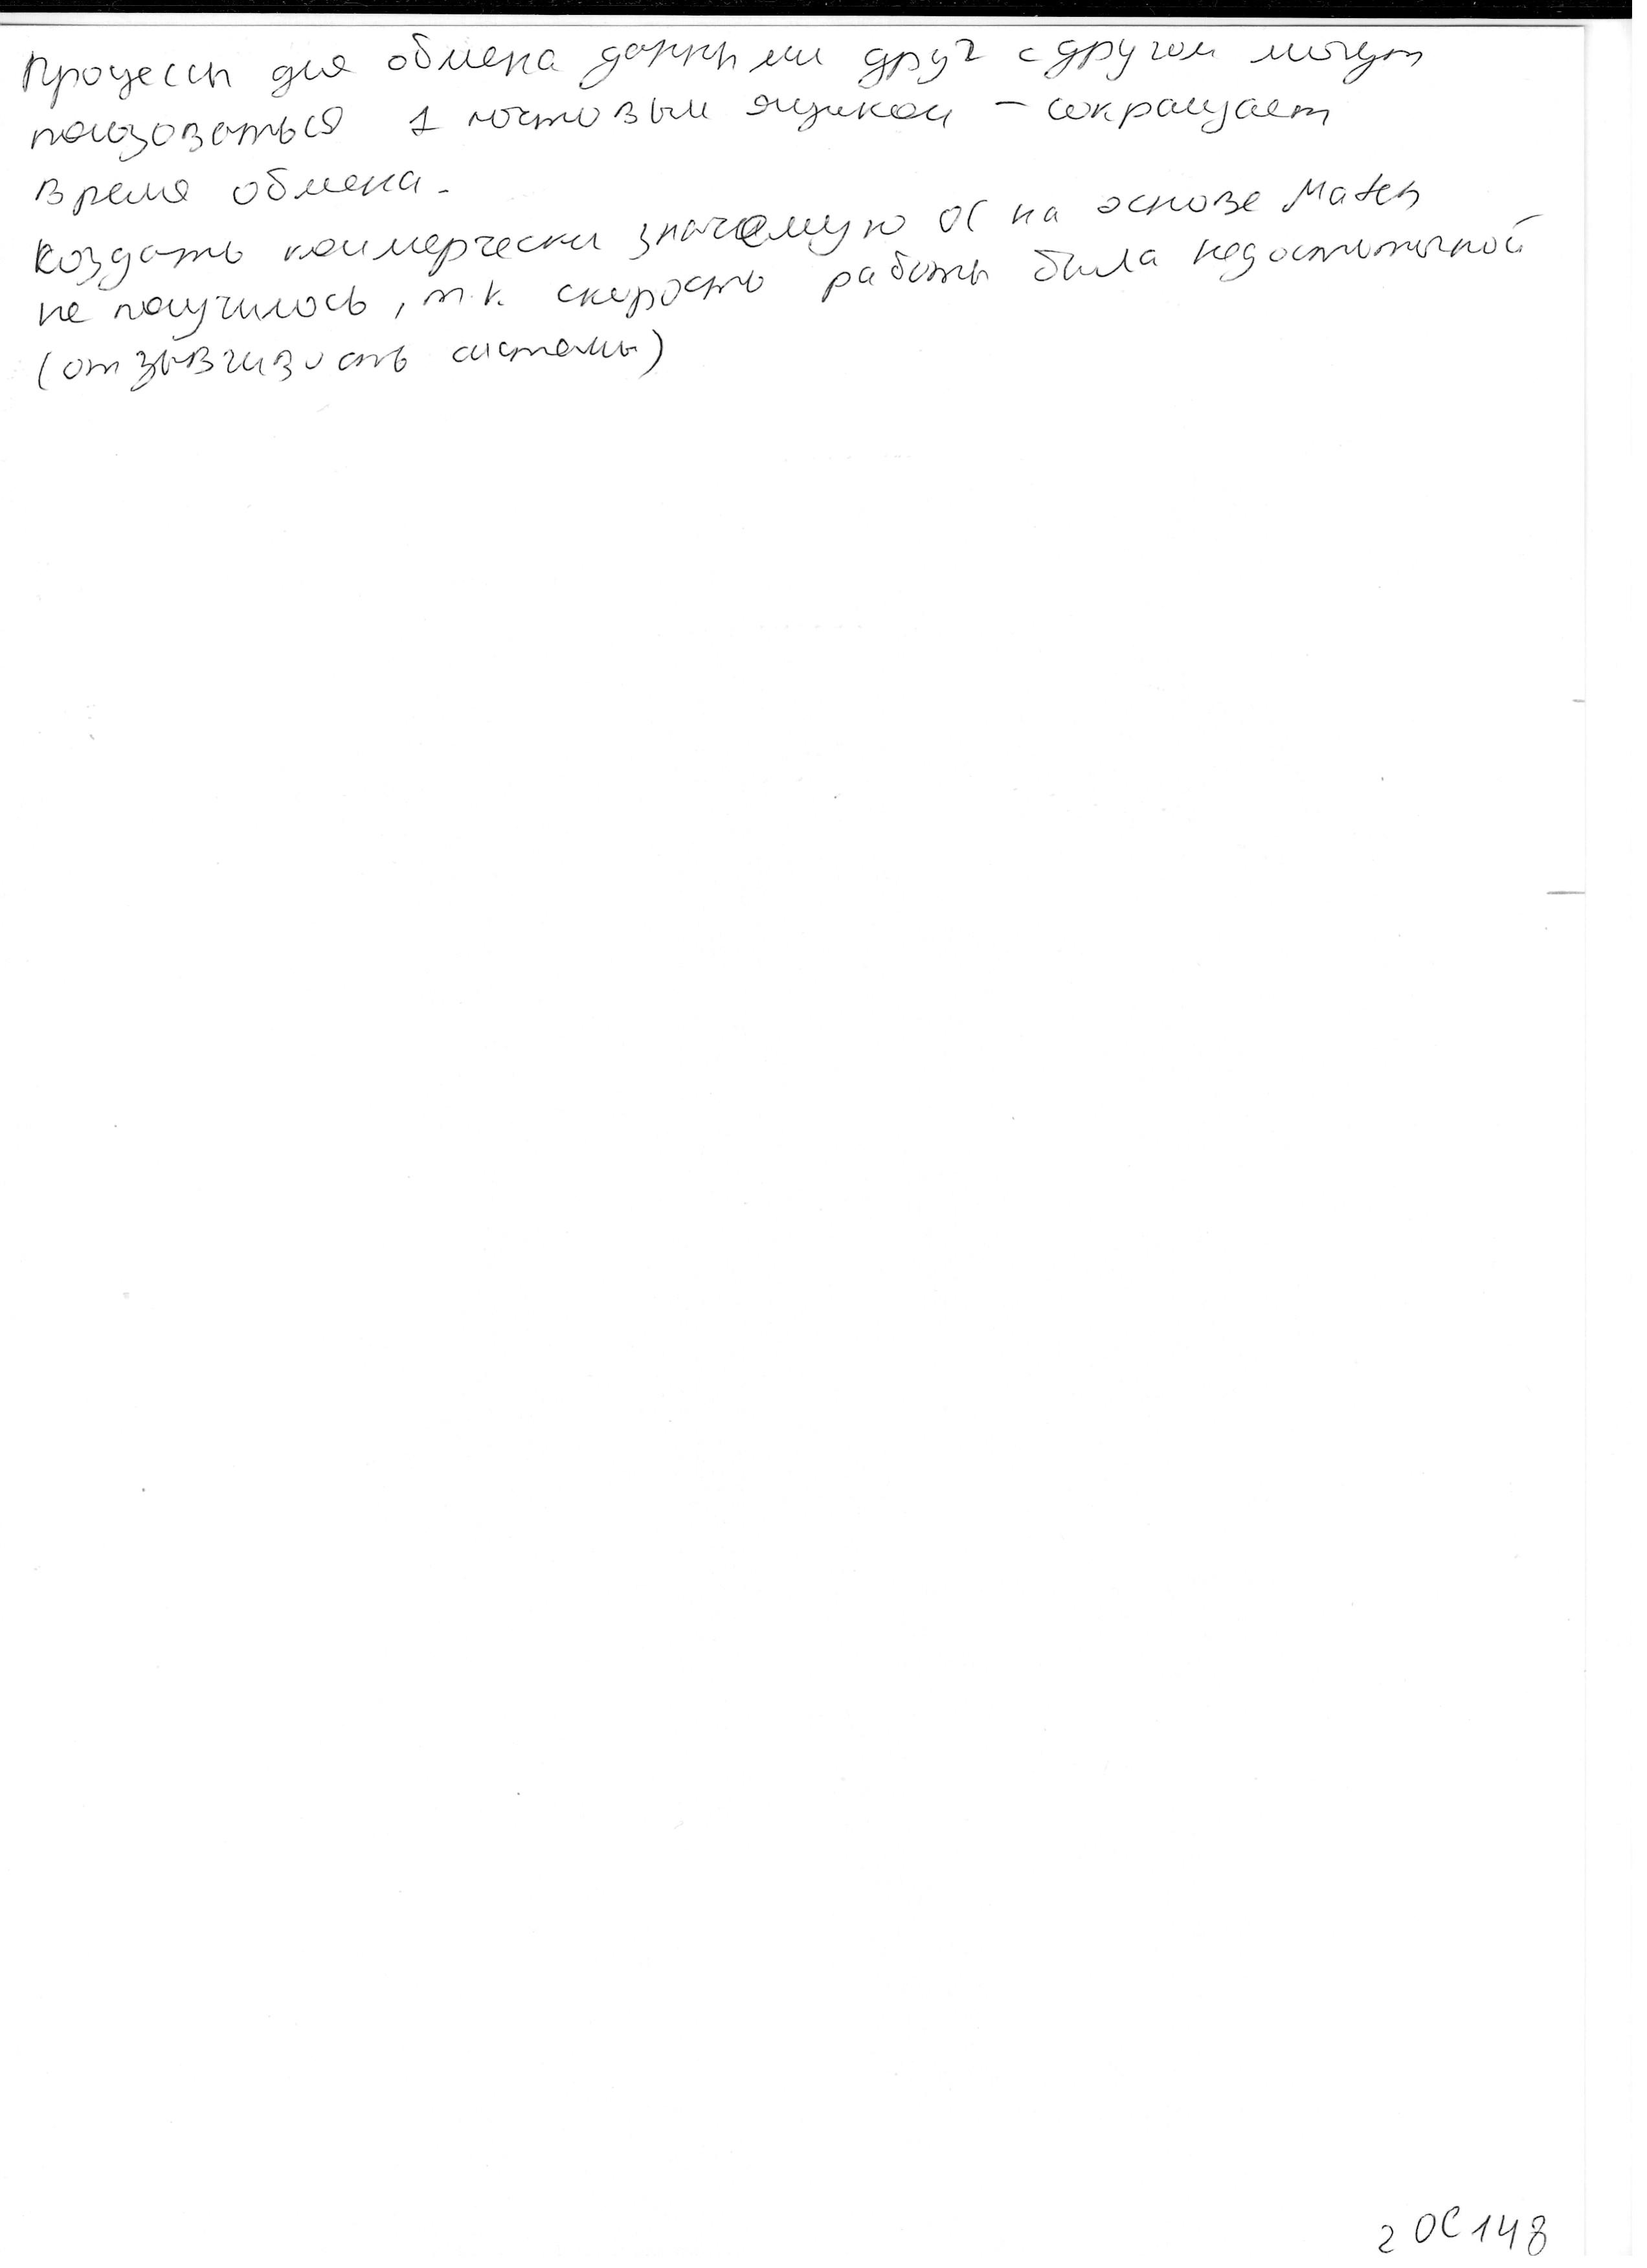 Процессы для обмена данными друг с другом могут
пользоваться 1 почтовым ящиком - сокращает
время обмена.
Создать коммерчески значемую ОС на основе Mach
не получилось, т.к. скорость работы была недостаточной
(отзывчивость системы)
2 ОС 148